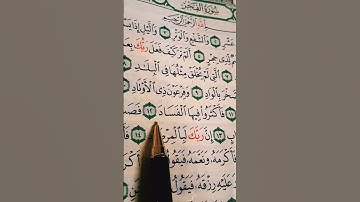 سُورَةُ الْفَجْرِ
بِسْمِ اللَّهِ الرَّحْمَٰنِ الرَّحِيمِ
عَشْرٍ ٢ وَالشَّفْعِ وَالْوَتْرِ ٣ وَاللَّيْلِ إِذَا
لِذِي حِجْرٍ ٥ أَلَمْ تَرَ كَيْفَ فَعَلَ رَبُّكَ
٧ الَّتِي لَمْ يُخْلَقْ مِثْلُهَا فِي الْبِلَادِ ٨
الصَّخْرَ بِالْوَادِ ٩ وَفِرْعَوْنَ ذِي الْأَوْتَادِ
١١ فَأَكْثَرُوا فِيهَا الْفَسَادَ ١٢ فَصَبَّ
١٣ إِنَّ رَبَّكَ لَبِالْمِرْصَادِ ١٤
فَأَكْرَمَهُ وَنَعَّمَهُ فَيَقُولُ
عَلَيْهِ رِزْقَهُ فَيَقُولُ